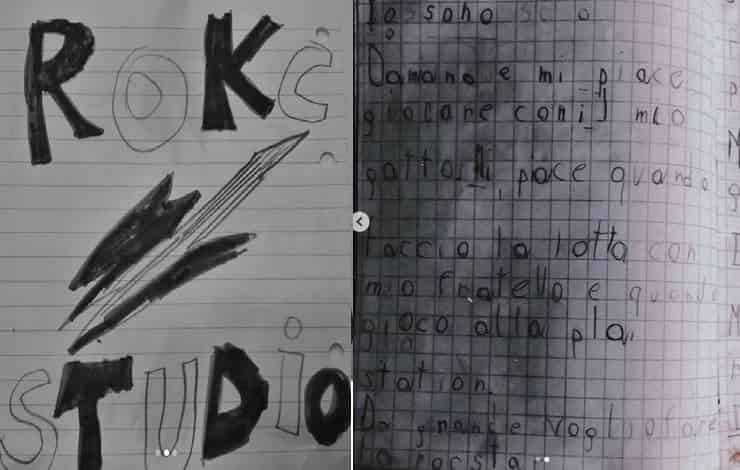 ROKC
STUDiO
Io sono
Damano e mi piace
giocare con il mio
gatto. Mi piace quando
faccio la lotta con
mio fratello e quando
gioco alla play
station.
Da grande voglio fare